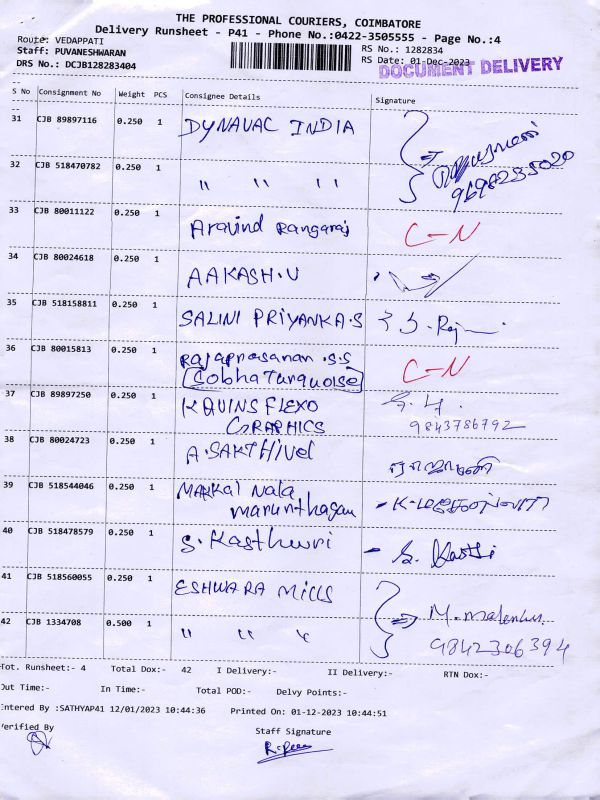 THE PROFESSIONAL COURIERS, COIMBATORE
Delivery Runsheet - P41 - Phone No.:0422-3505555 - Page No.:4
Route: VEDAPPATI
Staff: PUVANESHWARAN
DRS No.: DCJB128283404
RS No.: 1282834
RS Date: 01-Dec-2023
DOCUMENT DELIVERY
S No Consignment No Weight PCS Consignee Details Signature
31 CJB 89897116 0.250 1 DYNAVAC INDIA
9698235020
32 CJB 518470782 0.250 1 " " "
33 CJB 80011122 0.250 1 Aravind Rangaraj C-N
34 CJB 80024618 0.250 1 AAKASH.U
35 CJB 518158811 0.250 1 SALINI PRIYANKA.S
36 CJB 80015813 0.250 1 Rajaprasanan .S.S C-N
Sobha Turquoise
37 CJB 89897250 0.250 1 KAVINS FLEXO
GRAPHICS 9843786792
38 CJB 80024723 0.250 1 A.SAKTHIVel
39 CJB 518544046 0.250 1 MARKAl Nala
Marunthagam
40 CJB 518478579 0.250 1 S.Kasthuri
41 CJB 518560055 0.250 1 ESHWARA Mills
42 CJB 1334708 0.500 1 " " " 9842306394
Tot. Runsheet:- 4 Total Dox:- 42 I Delivery:- II Delivery:- RTN Dox:-
Out Time:- In Time:- Total POD:- Delvy Points:-
Entered By :SATHYAP41 12/01/2023 10:44:36 Printed On: 01-12-2023 10:44:51
Verified By Staff Signature